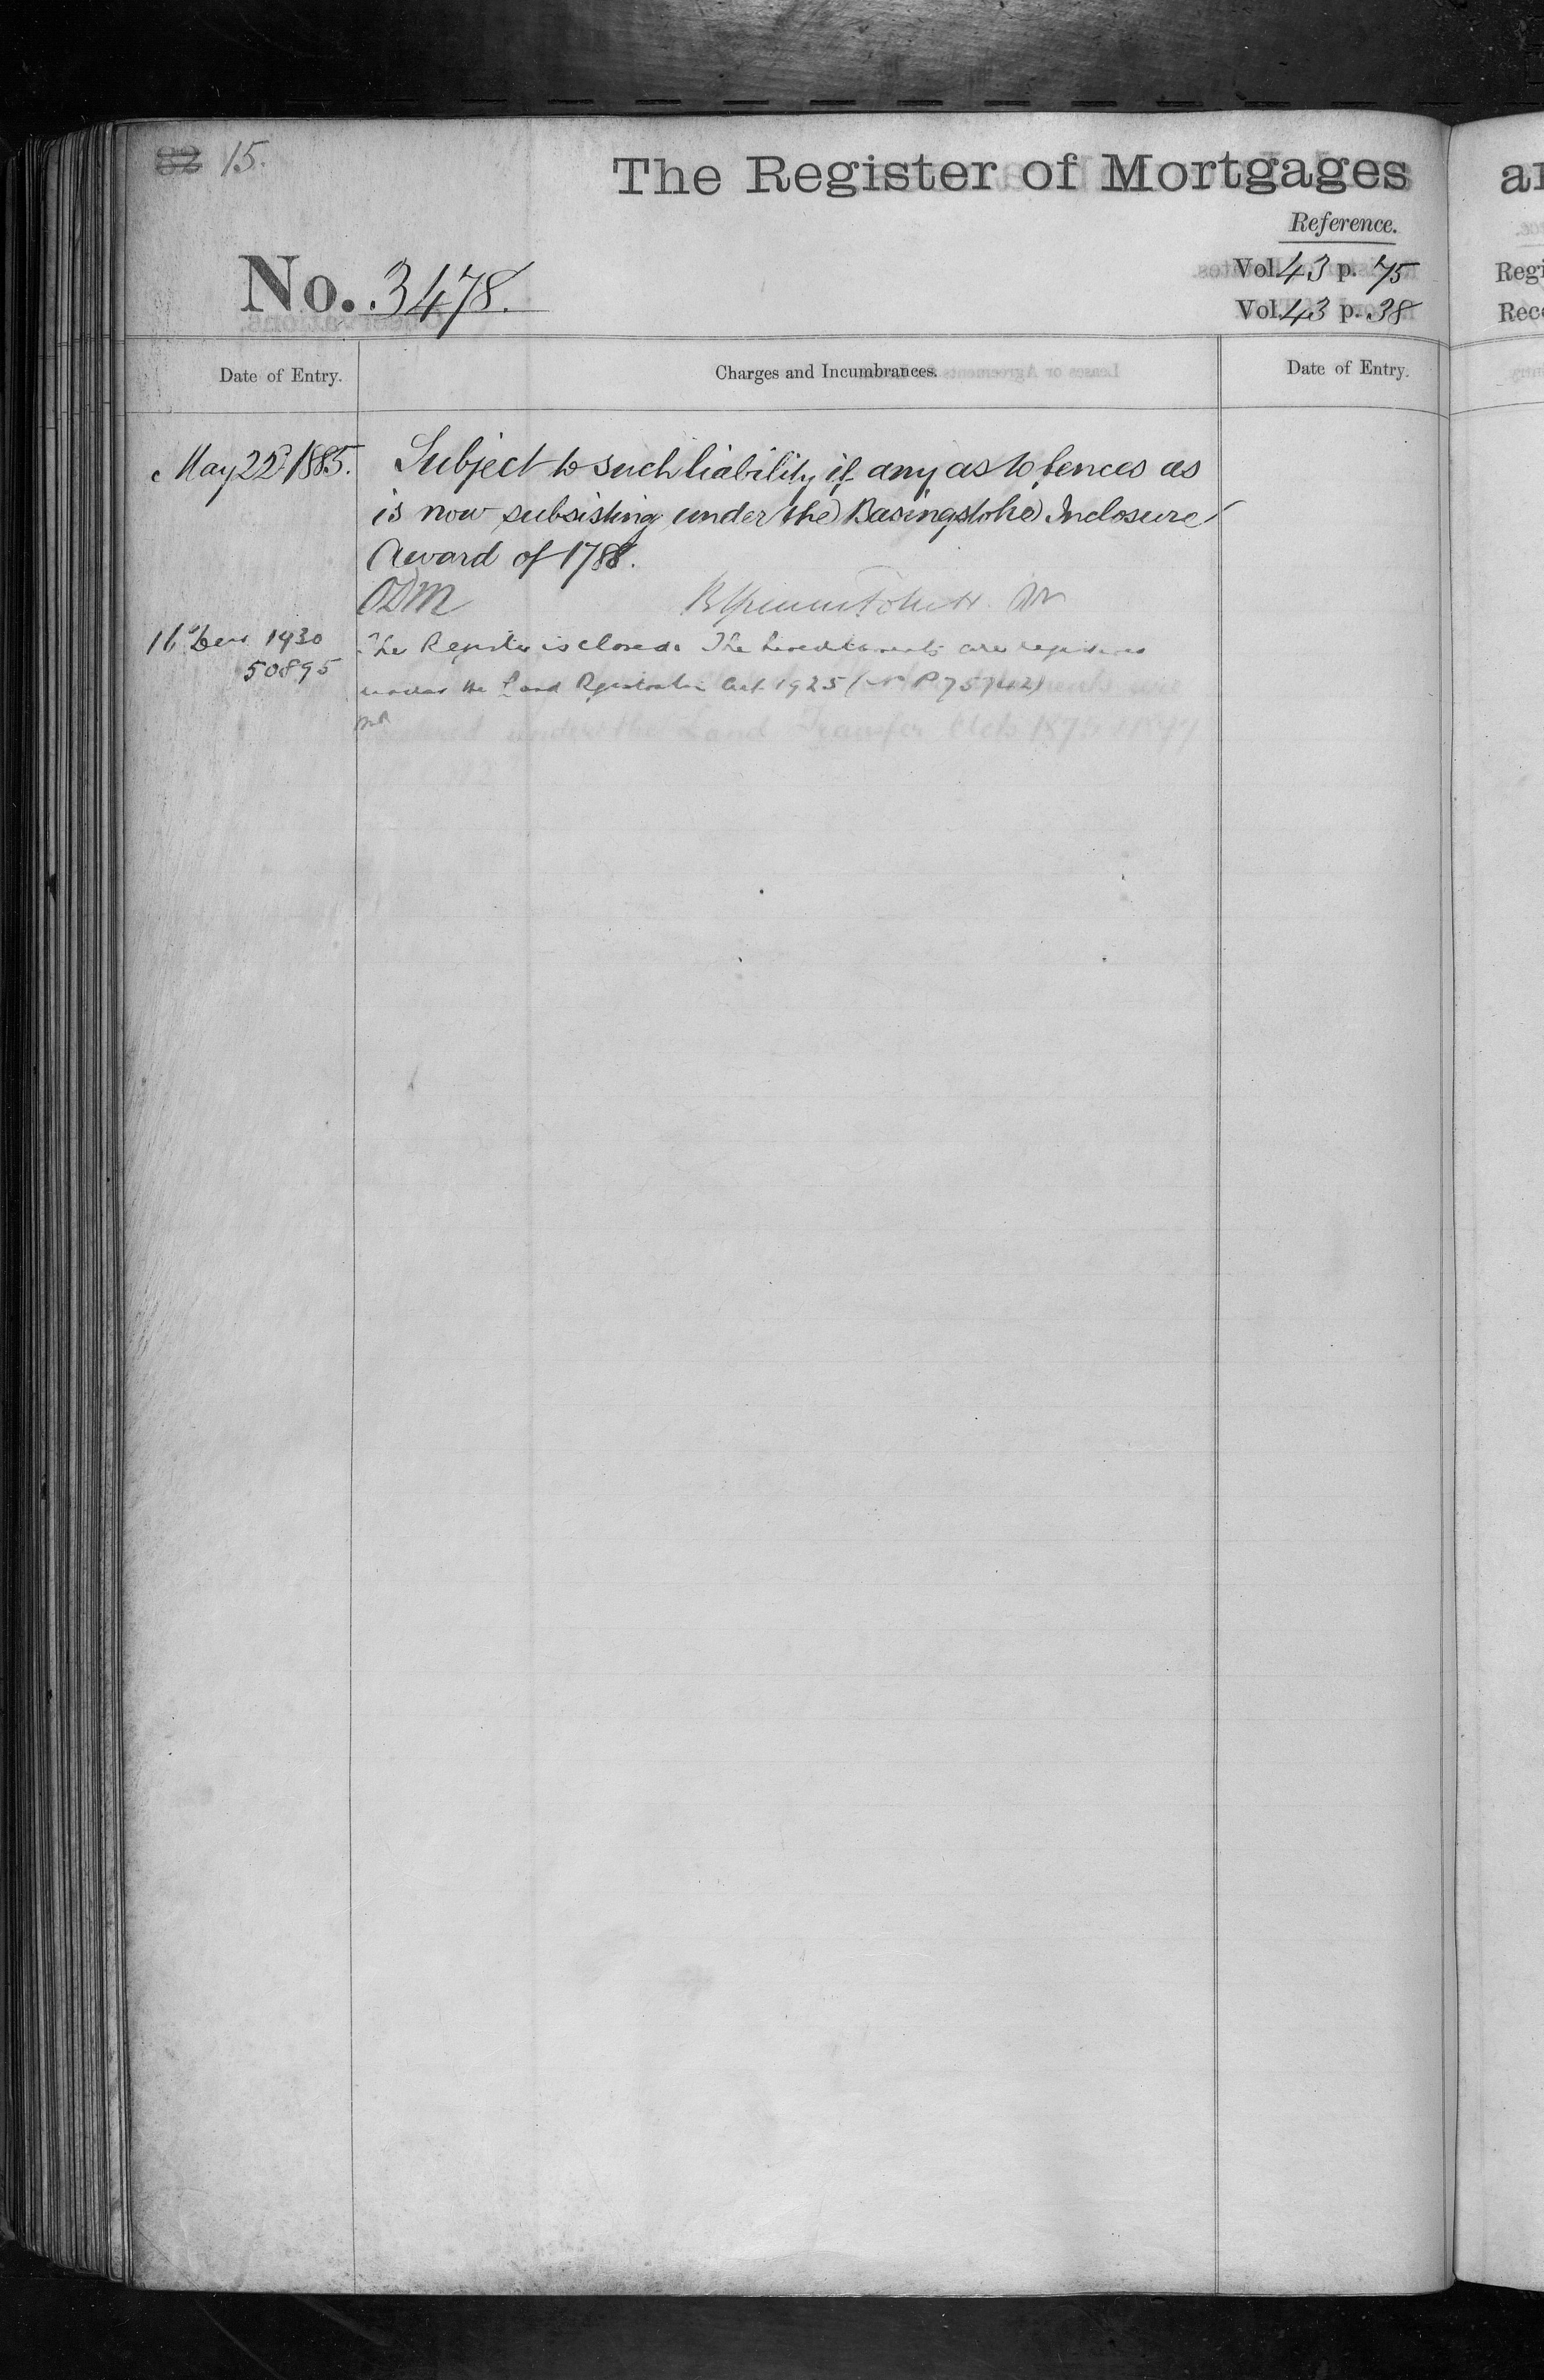 82 15.
The Register of Mortgages
Reference.
No. 3478.
Vol. 43 p. 75
Vol. 43 p. 38
Date of Entry.
Charges and Incumbrances.
Date of Entry.
May 22d 1885.
Subject to such liability if any as to fences as
is now subsisting under the Basingstoke Inclosure
Award of 1788.
ODM
16 Decr 1930
The Register is closed. The hereditaments are registered
50895
under the Land Registration Act 1925 (No P75742)
Regi
Rece